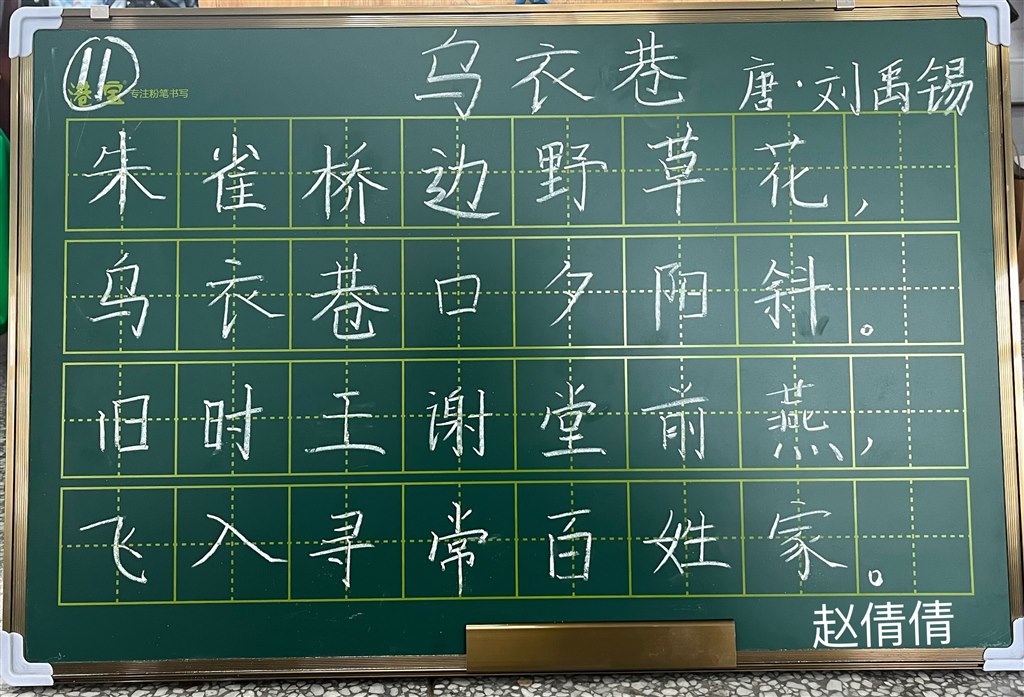 11
港宝 专注粉笔书写
乌衣巷 唐·刘禹锡
朱雀桥边野草花，
乌衣巷口夕阳斜。
旧时王谢堂前燕，
飞入寻常百姓家。
赵倩倩